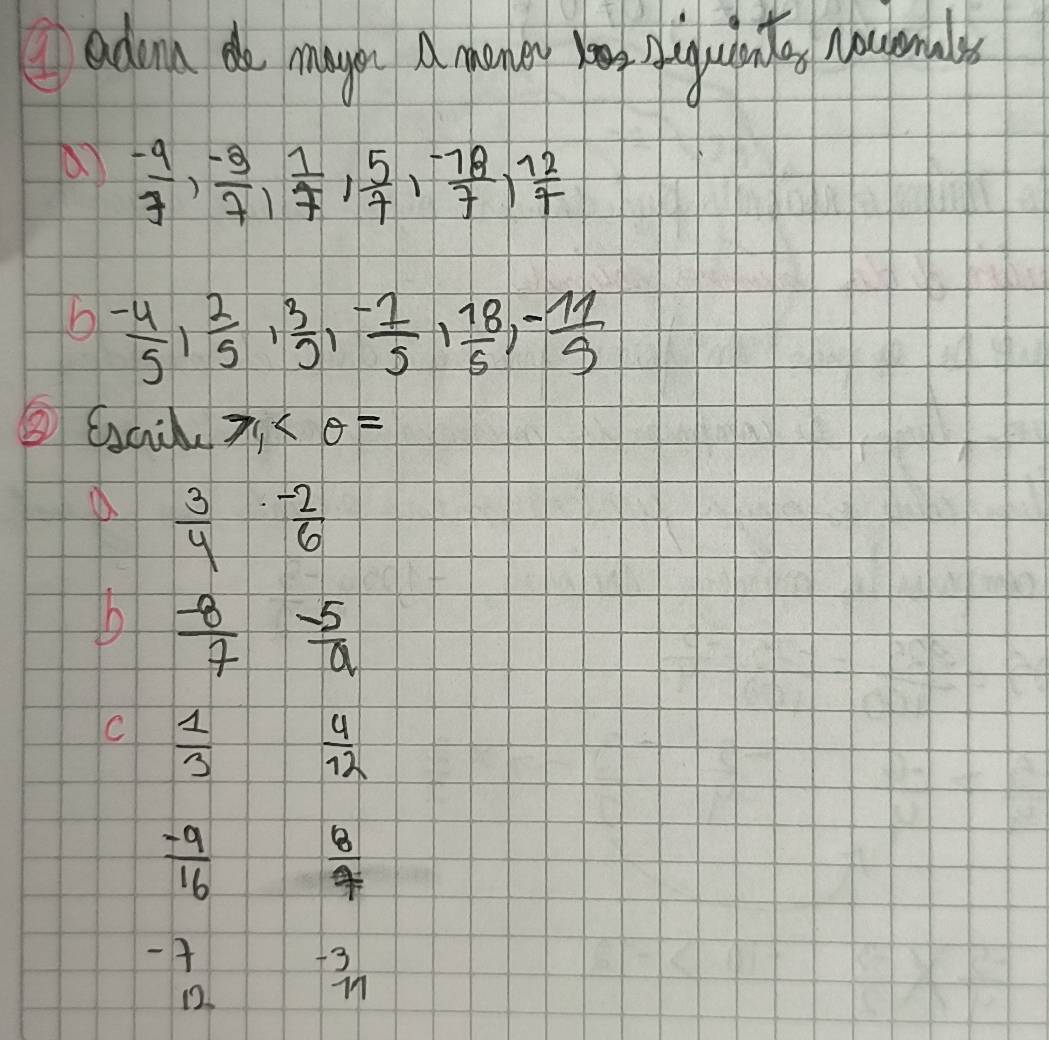 1) Ordena de mayor a menor los siguientes racionales
a) -9/7, -8/7, 1/7, 5/7, -18/7, 12/7
b -4/5, 2/5, 3/5, -1/5, 18/5, -11/5
2 Escribe >, < o =
a 3/4 -2/6
b -8/7 -5/9
c 1/3 4/12
-9/16 8/7
-7/12 -3/11